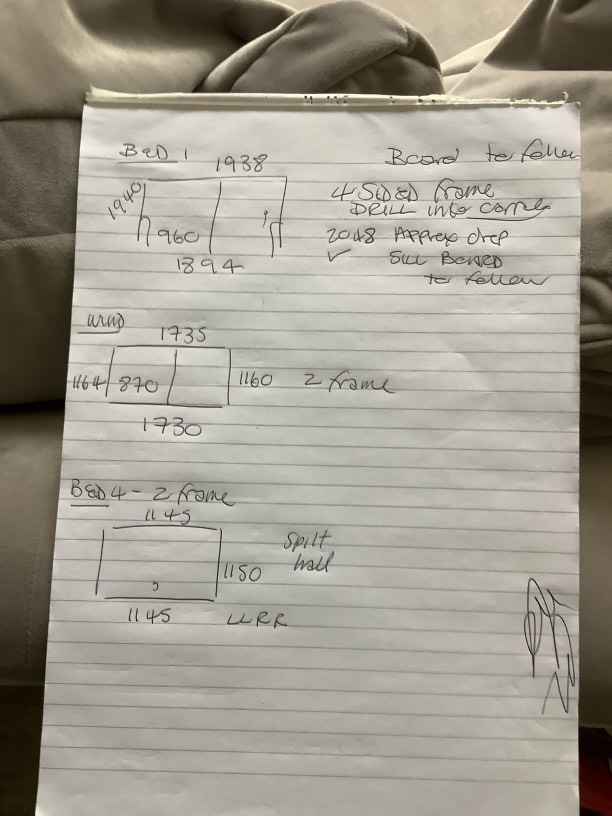 BED 1
1938
Board to follow
1940
4 SIDED frame
DRILL into corner
960
2048 Approx drop
1894
✓ Sill Board
to follow
1735
1164
870
1160
2 frame
1730
BED 4 - 2 frame
1145
Spilt
1150
1145
LLRR